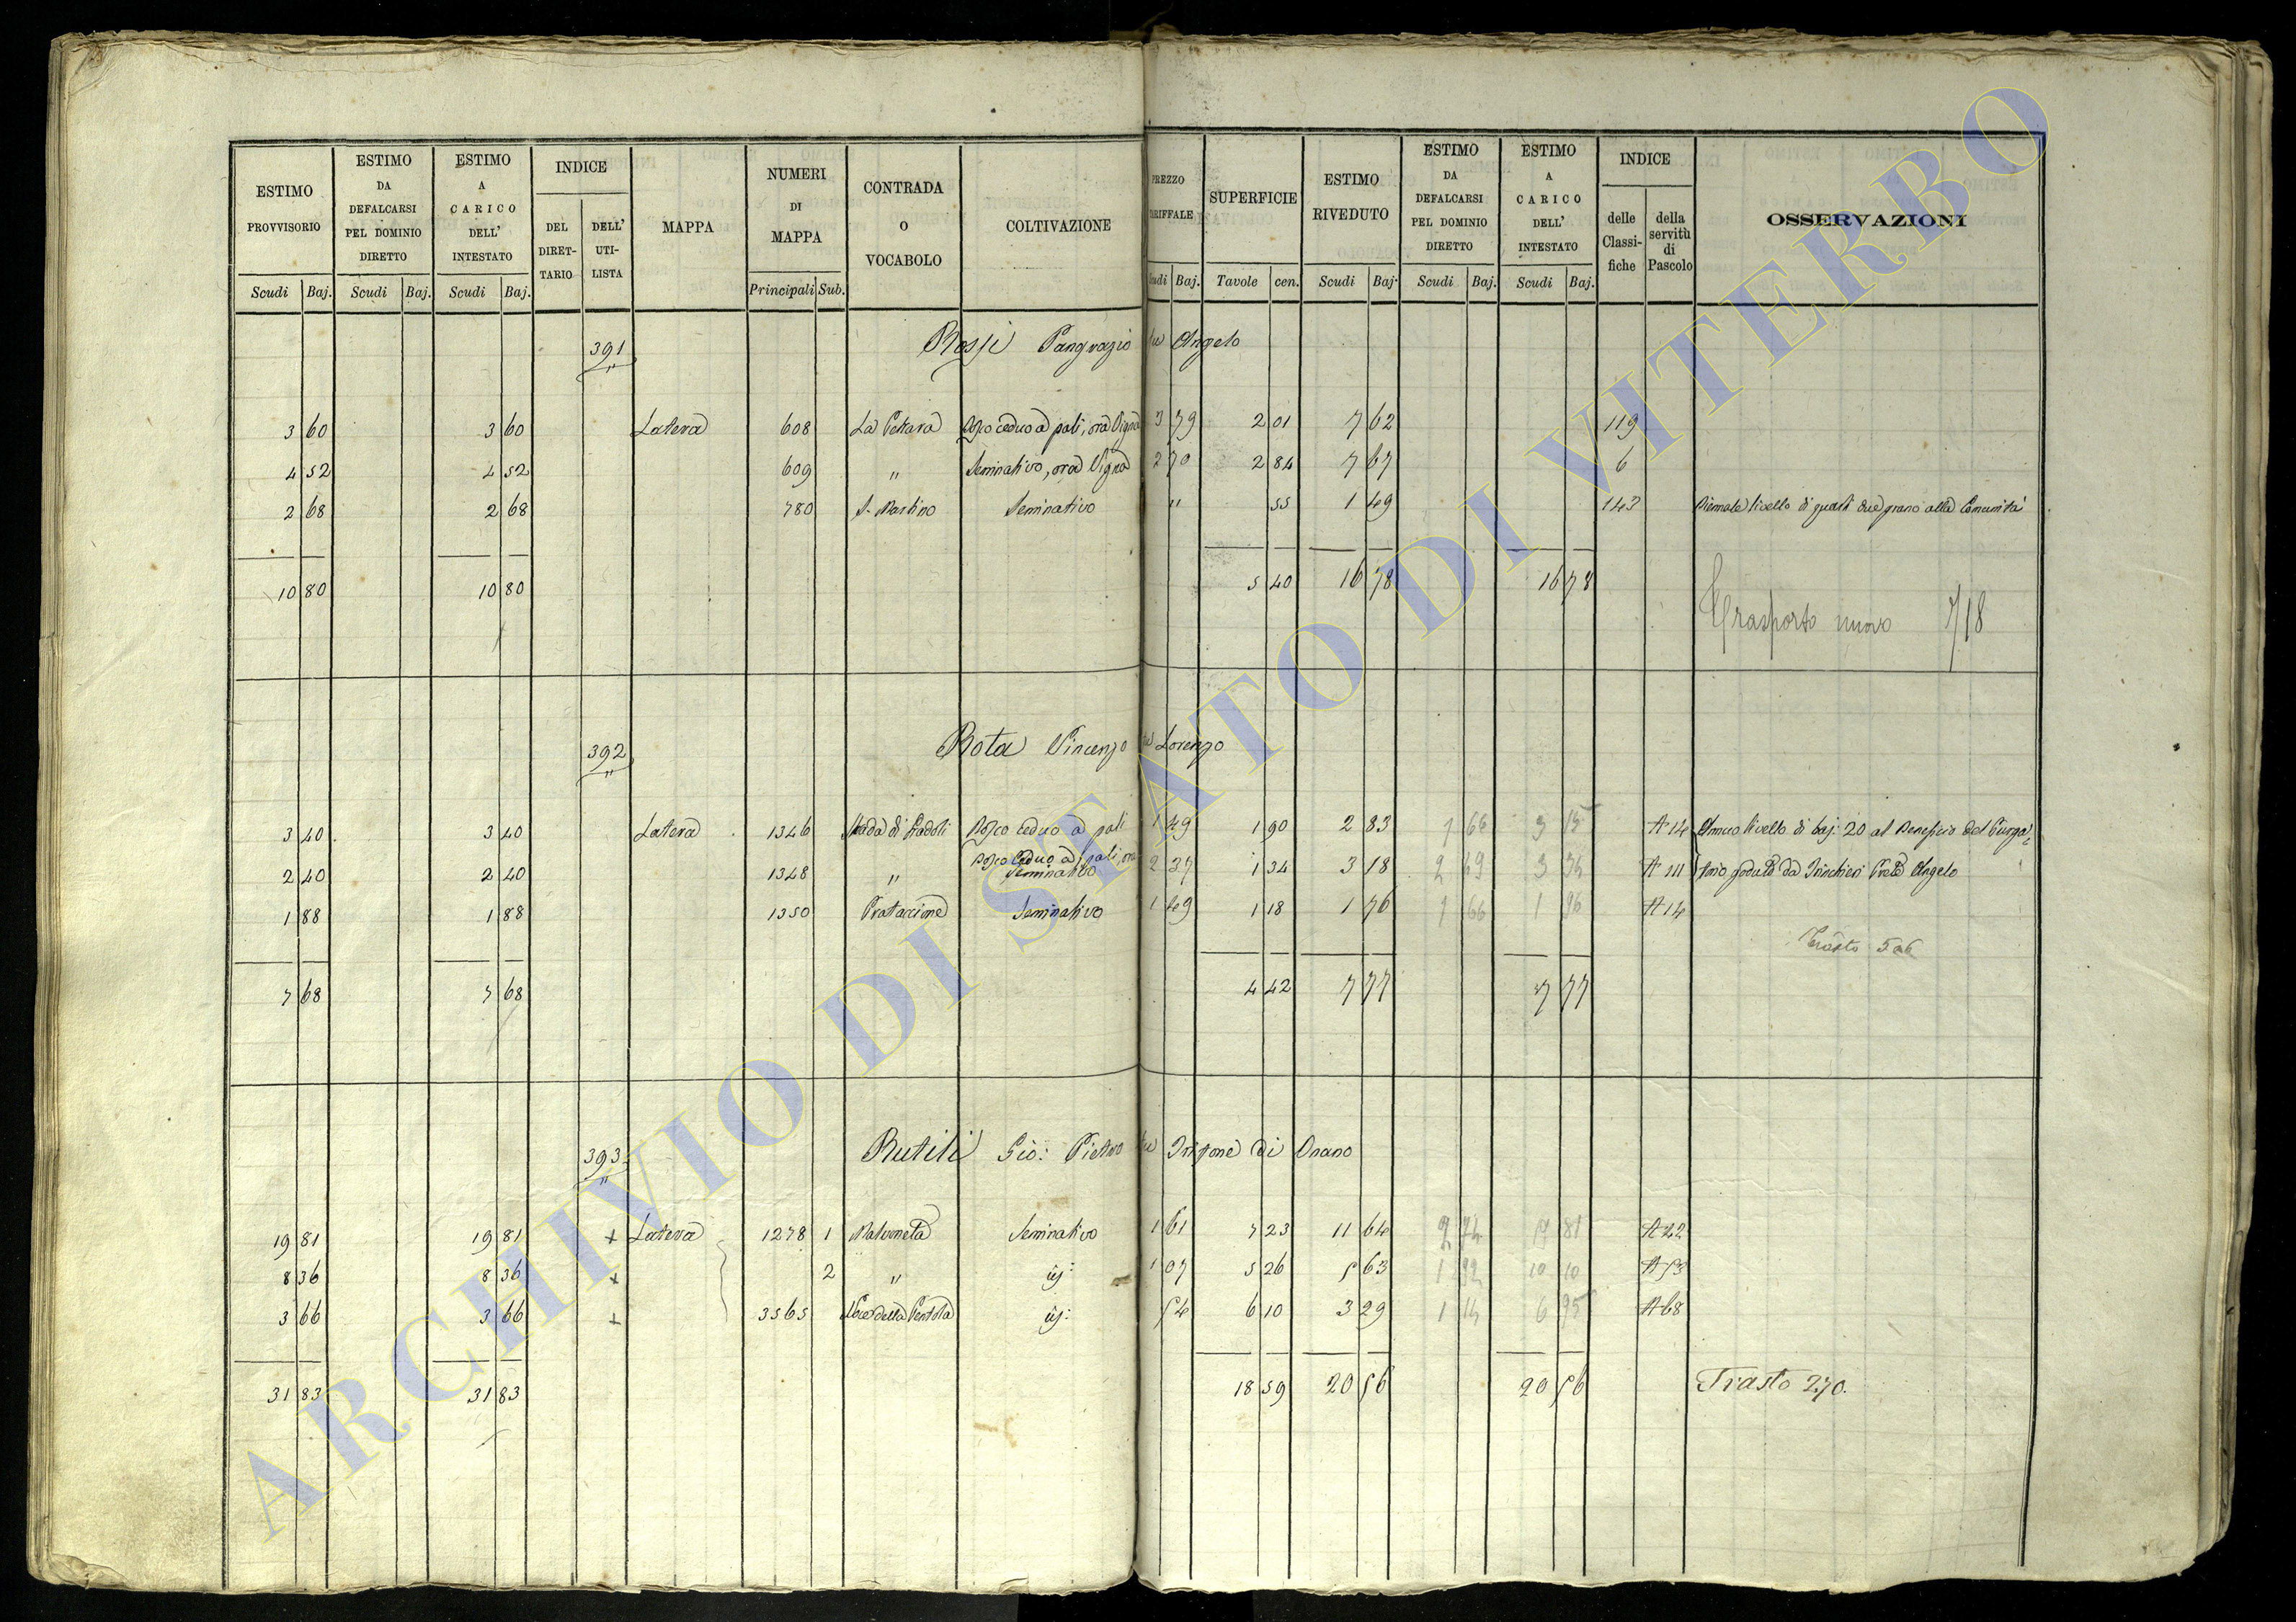 ESTIMO PROVVISORIO Scudi Baj. ESTIMO DA DEFALCARSI PEL DOMINIO DIRETTO Scudi Baj. ESTIMO A CARICO DELL' INTESTATO Scudi Baj. INDICE DEL DIRET-TARIO DELL' UTI-LISTA MAPPA NUMERI DI MAPPA Principali Sub. CONTRADA O VOCABOLO COLTIVAZIONE PREZZO TARIFFALE Scudi Baj. SUPERFICIE Tavole cen. ESTIMO RIVEDUTO Scudi Baj. ESTIMO DA DEFALCARSI PEL DOMINIO DIRETTO Scudi Baj. ESTIMO A CARICO DELL' INTESTATO Scudi Baj. INDICE delle Classi-fiche della servitù di Pascolo OSSERVAZIONI
391 Rossi Pangrazio fu Angelo
3 60 3 60 Latera 608 La Petrara Bosco ceduo a pali, ora Vigna 3 79 2 01 7 62 119
4 52 4 52 609 " Seminativo, ora Vigna 2 70 2 84 7 67 6
2 68 2 68 780 S. Martino Seminativo " 55 1 49 143 livello di quarti due grano alla Comunità
10 80 10 80 5 40 16 78 16 78
Trasporto nuovo 718
392 Rota Vincenzo fu Lorenzo
3 40 3 40 Latera 1346 Strada di Gradoli Bosco ceduo a pali 1 49 1 90 2 83 1 66 3 15 A 14 Annuo livello di baj: 20 al Beneficio del Purga=
2 40 2 40 1348 " Bosco ceduo a pali, ora Seminativo 2 37 1 34 3 18 2 69 3 54 A 111 torio goduto da Trinchieri Prete Angelo
1 88 1 88 1350 Prataccione Seminativo 1 49 1 18 1 76 1 66 1 96 A 14
Trasto 506
7 68 7 68 4 42 7 77 7 77
393 Rutili Gio: Pietro fu Grisone di Onano
19 81 19 81 + Latera 1278 1 Malvoneta Seminativo 1 61 7 23 11 64 2 74 19 81 A 42
8 36 8 36 + 2 " id: 1 07 5 26 5 63 1 92 10 10 A 53
3 66 3 66 + 3565 della id: 54 6 10 3 29 1 14 6 95 A 68
31 83 31 83 18 59 20 56 20 56 Trasto 270.
ARCHIVIO DI STATO DI VITERBO